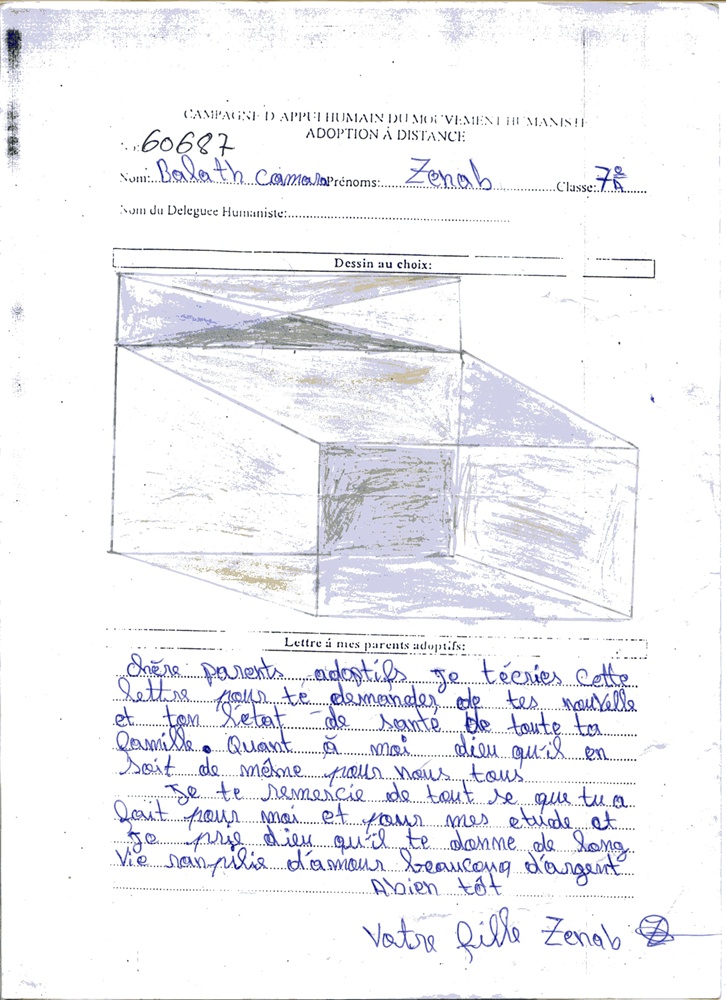 CAMPAGNE D'APPUI HUMAIN DU MOUVEMENT HUMANISTE
ADOPTION À DISTANCE
N°: 60687
Nom: Balath camara Prénoms: Zenab Classe: 7e A
Nom du Deleguee Humaniste:
Dessin au choix:
Lettre à mes parents adoptifs:
chère parents adoptifs je t'écries cette
lettre pour te demander de tes nouvelle
et ton l'état de santé de toute ta
famille. Quant à moi dieu qu'il en
soit de même pour nous tous
Je te remercie de tout se que tu a
fait pour moi et pour mes etude et
je prie dieu qu'il te donne de long
vie ranplie d'amour beaucoup d'argent
Abien tôt
Votre fille Zenab